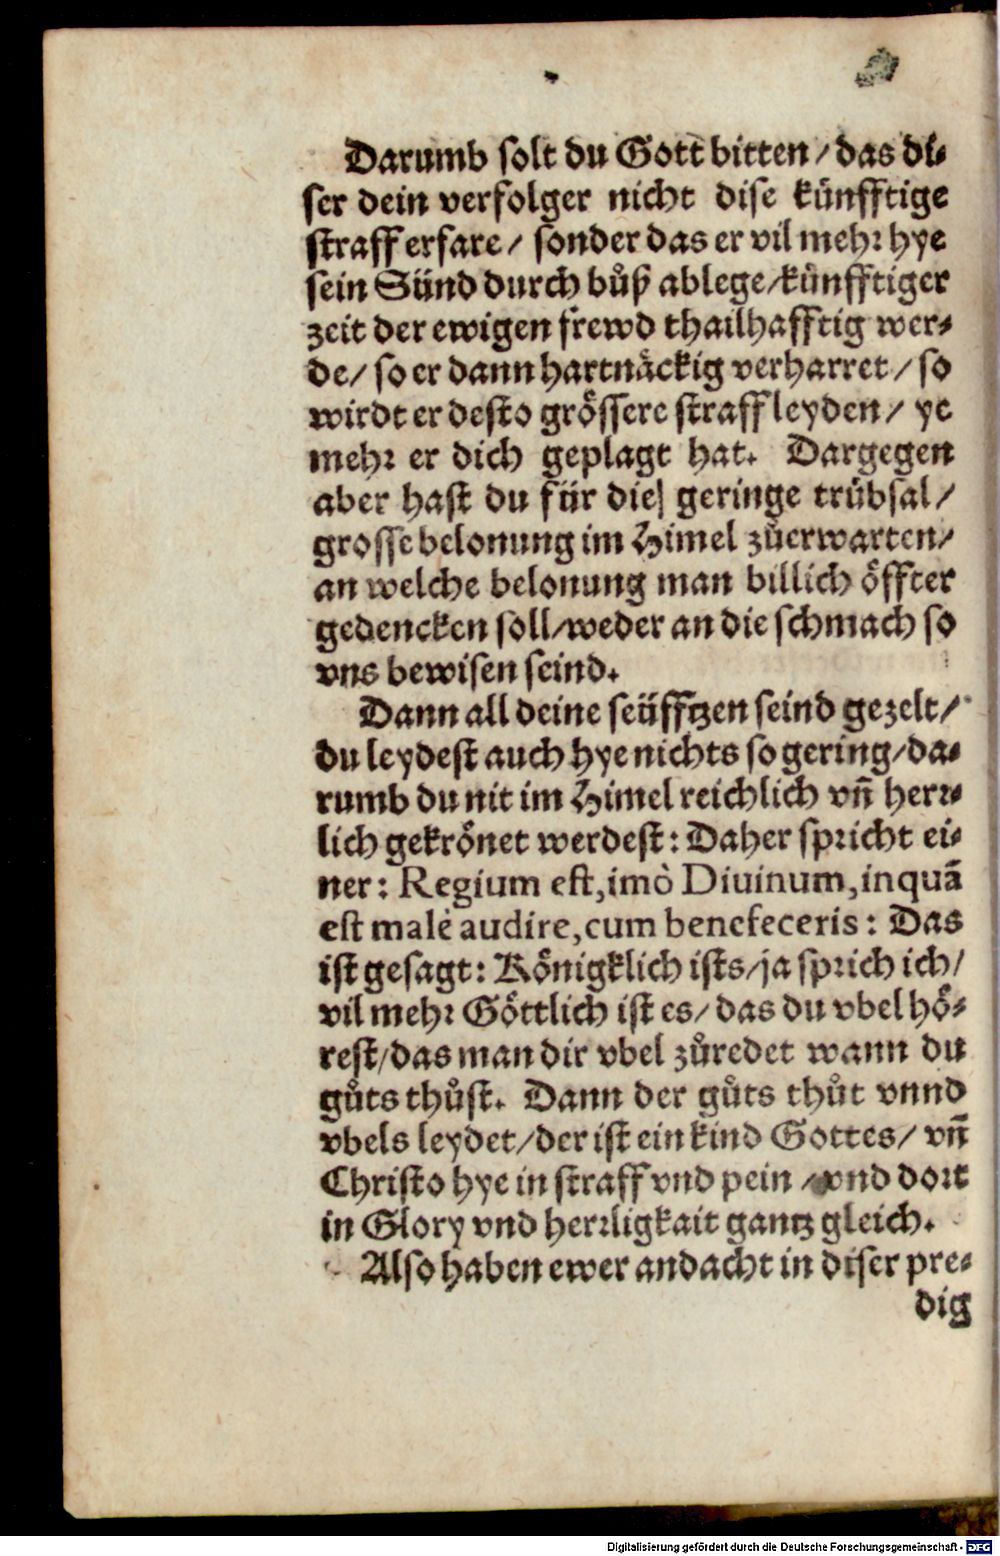 Darumb solt du Gott bitten / das di⸗
ser dein verfolger nicht dise künfftige
straff erfare / sonder das er vil mehr hye
sein Sünd durch bůß ablege / künfftiger
zeit der ewigen frewd thailhafftig wer⸗
de / so er dann hartnäckig verharret / so
wirdt er desto grössere straff leyden / ye
mehr er dich geplagt hat. Dargegen
aber hast du für dies geringe trübsal /
grosse belonung im Himel zůerwarten /
an welche belonung man billich öffter
gedencken soll / weder an die schmach so
vns bewisen seind.
Dann all deine seüfftzen seind gezelt /
du leydest auch hye nichts so gering / da⸗
rumb du nit im Himel reichlich vñ herr⸗
lich gekrönet werdest: Daher spricht ei⸗
ner: Regium est, imò Diuinum, inquā
est malè audire, cum benefeceris: Das
ist gesagt: Königklich ists / ja sprich ich /
vil mehr Göttlich ist es / das du vbel hö⸗
rest / das man dir vbel zůredet wann du
gůts thůst. Dann der gůts thůt vnnd
vbels leydet / der ist ein kind Gottes / vñ
Christo hye in straff vnd pein / vnd dort
in Glory vnd herrligkait gantz gleich.
Also haben ewer andacht in diser pre⸗
dig
Digitalisierung gefördert durch die Deutsche Forschungsgemeinschaft - DFG